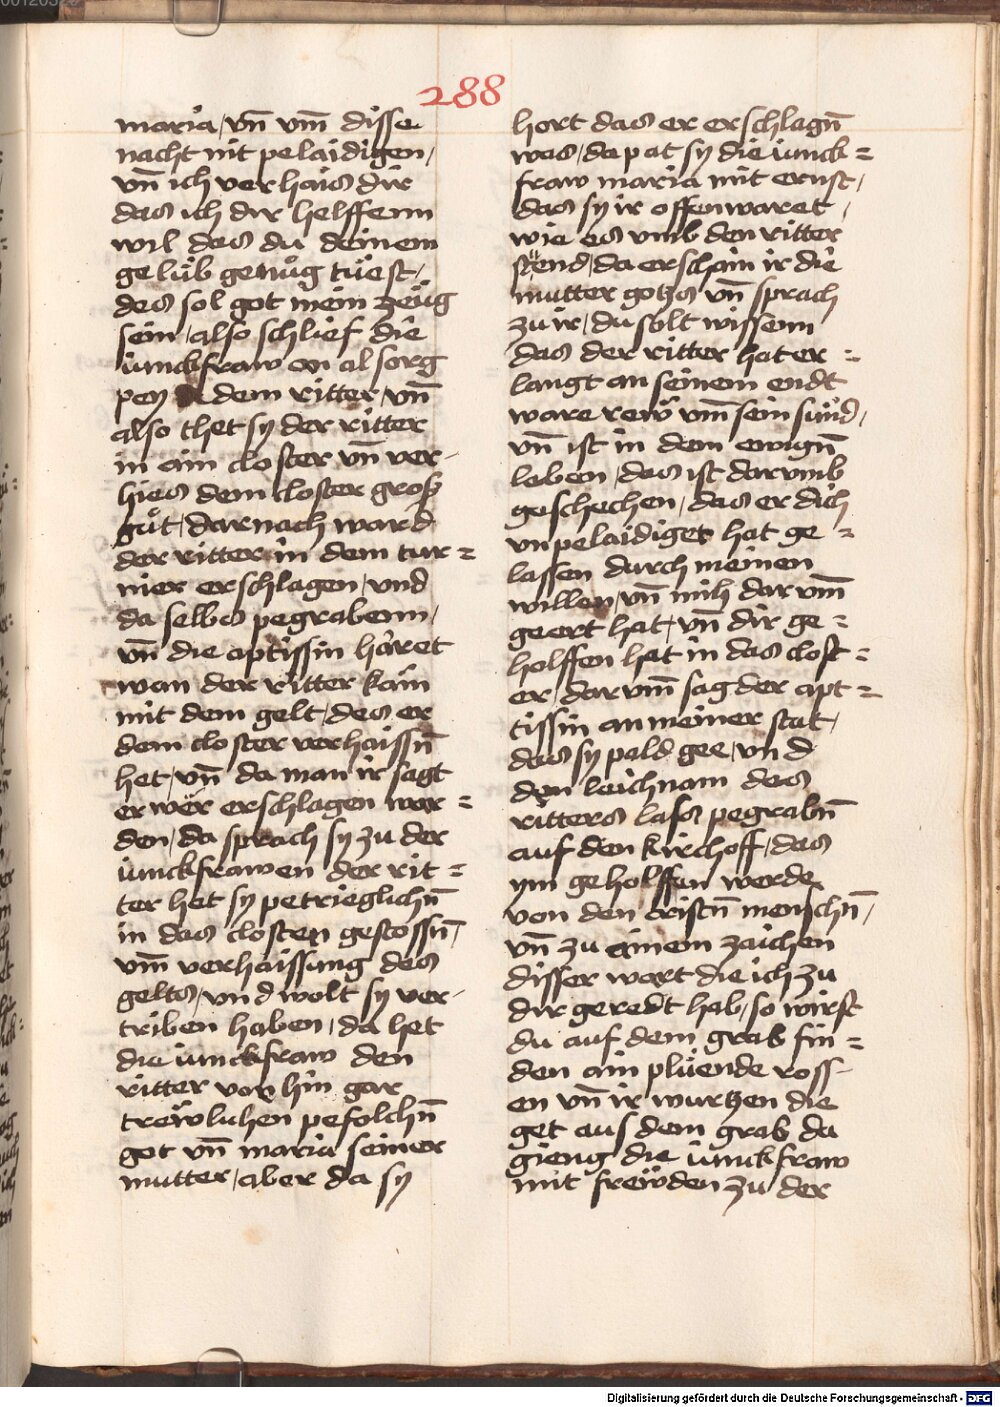 288
maria / vn̄ vm̄ disse
nacht nit pelaidigen /
vn̄ ich verhais dir
das ich dir helffenn
wil das du deinem
gelüb genůg tüest /
des sol got mein zeüg
sein / also schlief die
iunckfraw on al sorg
pey dem ritter / vn̄
also thet sy der ritter
in ain closter vn̄ ver-
hies dem closter groß
gůt / darnach ward
der ritter in dem tur =
nier erschlagen / vnd
da selbs pegrabenn /
vn̄ die aptissin harret
wan der ritter kam
mit dem gelt / des er
dem closter verhaissn̄
het / vn̄ da man ir sagt
er wër erschlagen wor =
den / da sprach sy zu der
iunckfrawen der rit =
ter het sy petrieglichn̄
in das closter gestossn̄ /
vm̄ verhaissung des
gelts / vnd wolt sy ver-
triben haben / da het
die iunckfraw den
ritter vorhin gar
trewlichen pefolchn̄
got vn̄ maria seiner
mutter / aber da sy
hort das er erschlagn̄
was / da pat sy die iunck =
fraw maria mit ernst /
das sy ir offenwaret /
wie es vmb den ritter
stend / da erschain ir die
mutter gotzs vn̄ sprach
zu ir / du solt wissenn
das der ritter hat er =
langt an seinem endt
ware rew vm̄ sein sünd /
vn̄ ist in dem ewign̄
leben / das ist darvmb
geschechen / das er dich
vnpelaidiget hat ge =
lassen durch meinen
willen / vn̄ mih darvm̄
geert hat / vn̄ dir ge =
holffen hat in das clost =
er / darvm̄ sag der apt =
tissin an meiner stat /
das sy pald gee / vnd
den leichnam des
ritters lass pegrabn̄
auf den kirchoff / das
ym geholffen werde
von den cristn̄ menschn̄ /
vn̄ zu ainem zaichen
disser wort die ich zu
dir geredt hab / so wirst
du auf dem grab fin =
den ain plüende ross-
en vn̄ ir wurtzen die
get aus dem grab da
gieng die iunckfraw
mit frewden zu der
Digitalisierung gefördert durch die Deutsche Forschungsgemeinschaft - DFG